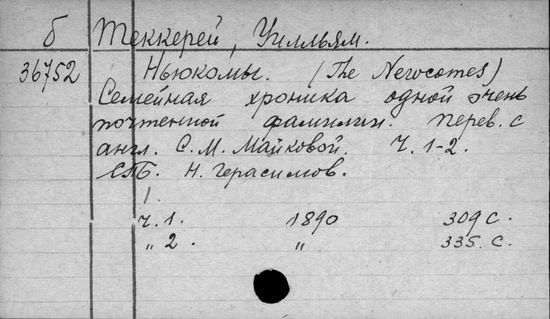 б Теккерей, Уилльям.
36752 Ньюкомы. (The Newcomes)
Семейная хроника одной очень
почтенной фамилии. Перев. с
англ. С. М. Майковой. Ч. 1-2.
СПБ. Н. Герасимов.
1.
Ч. 1. 1890 309 с.
„ 2. „ 335. с.